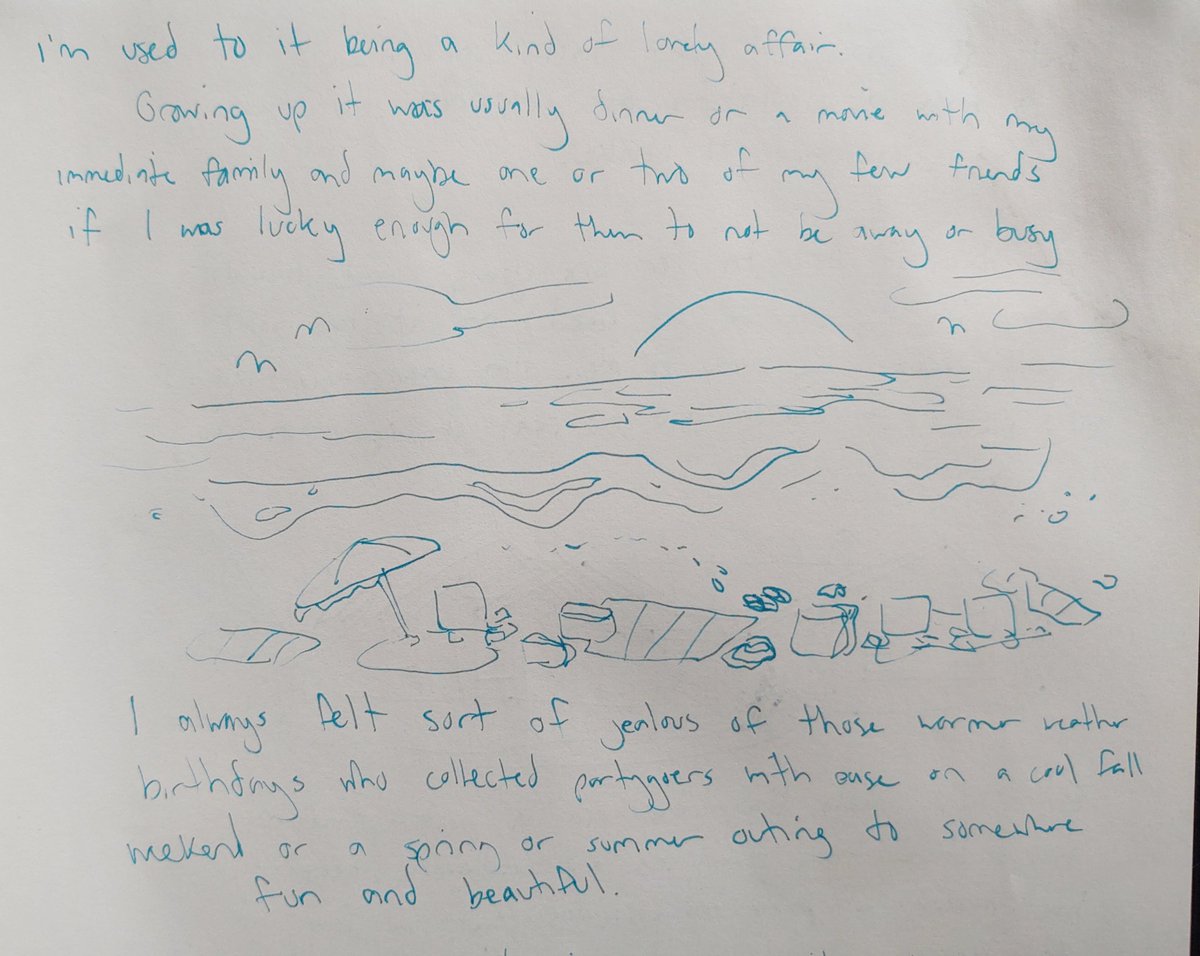 i'm used to it being a kind of lonely affair.
Growing up it was usually dinner or a movie with my
immediate family and maybe one or two of my few friends
if I was lucky enough for them to not be away or busy
I always felt sort of jealous of those warmer weather
birthdays who collected partygoers with ease on a cool fall
weekend or a spring or summer outing to somewhere
fun and beautiful.